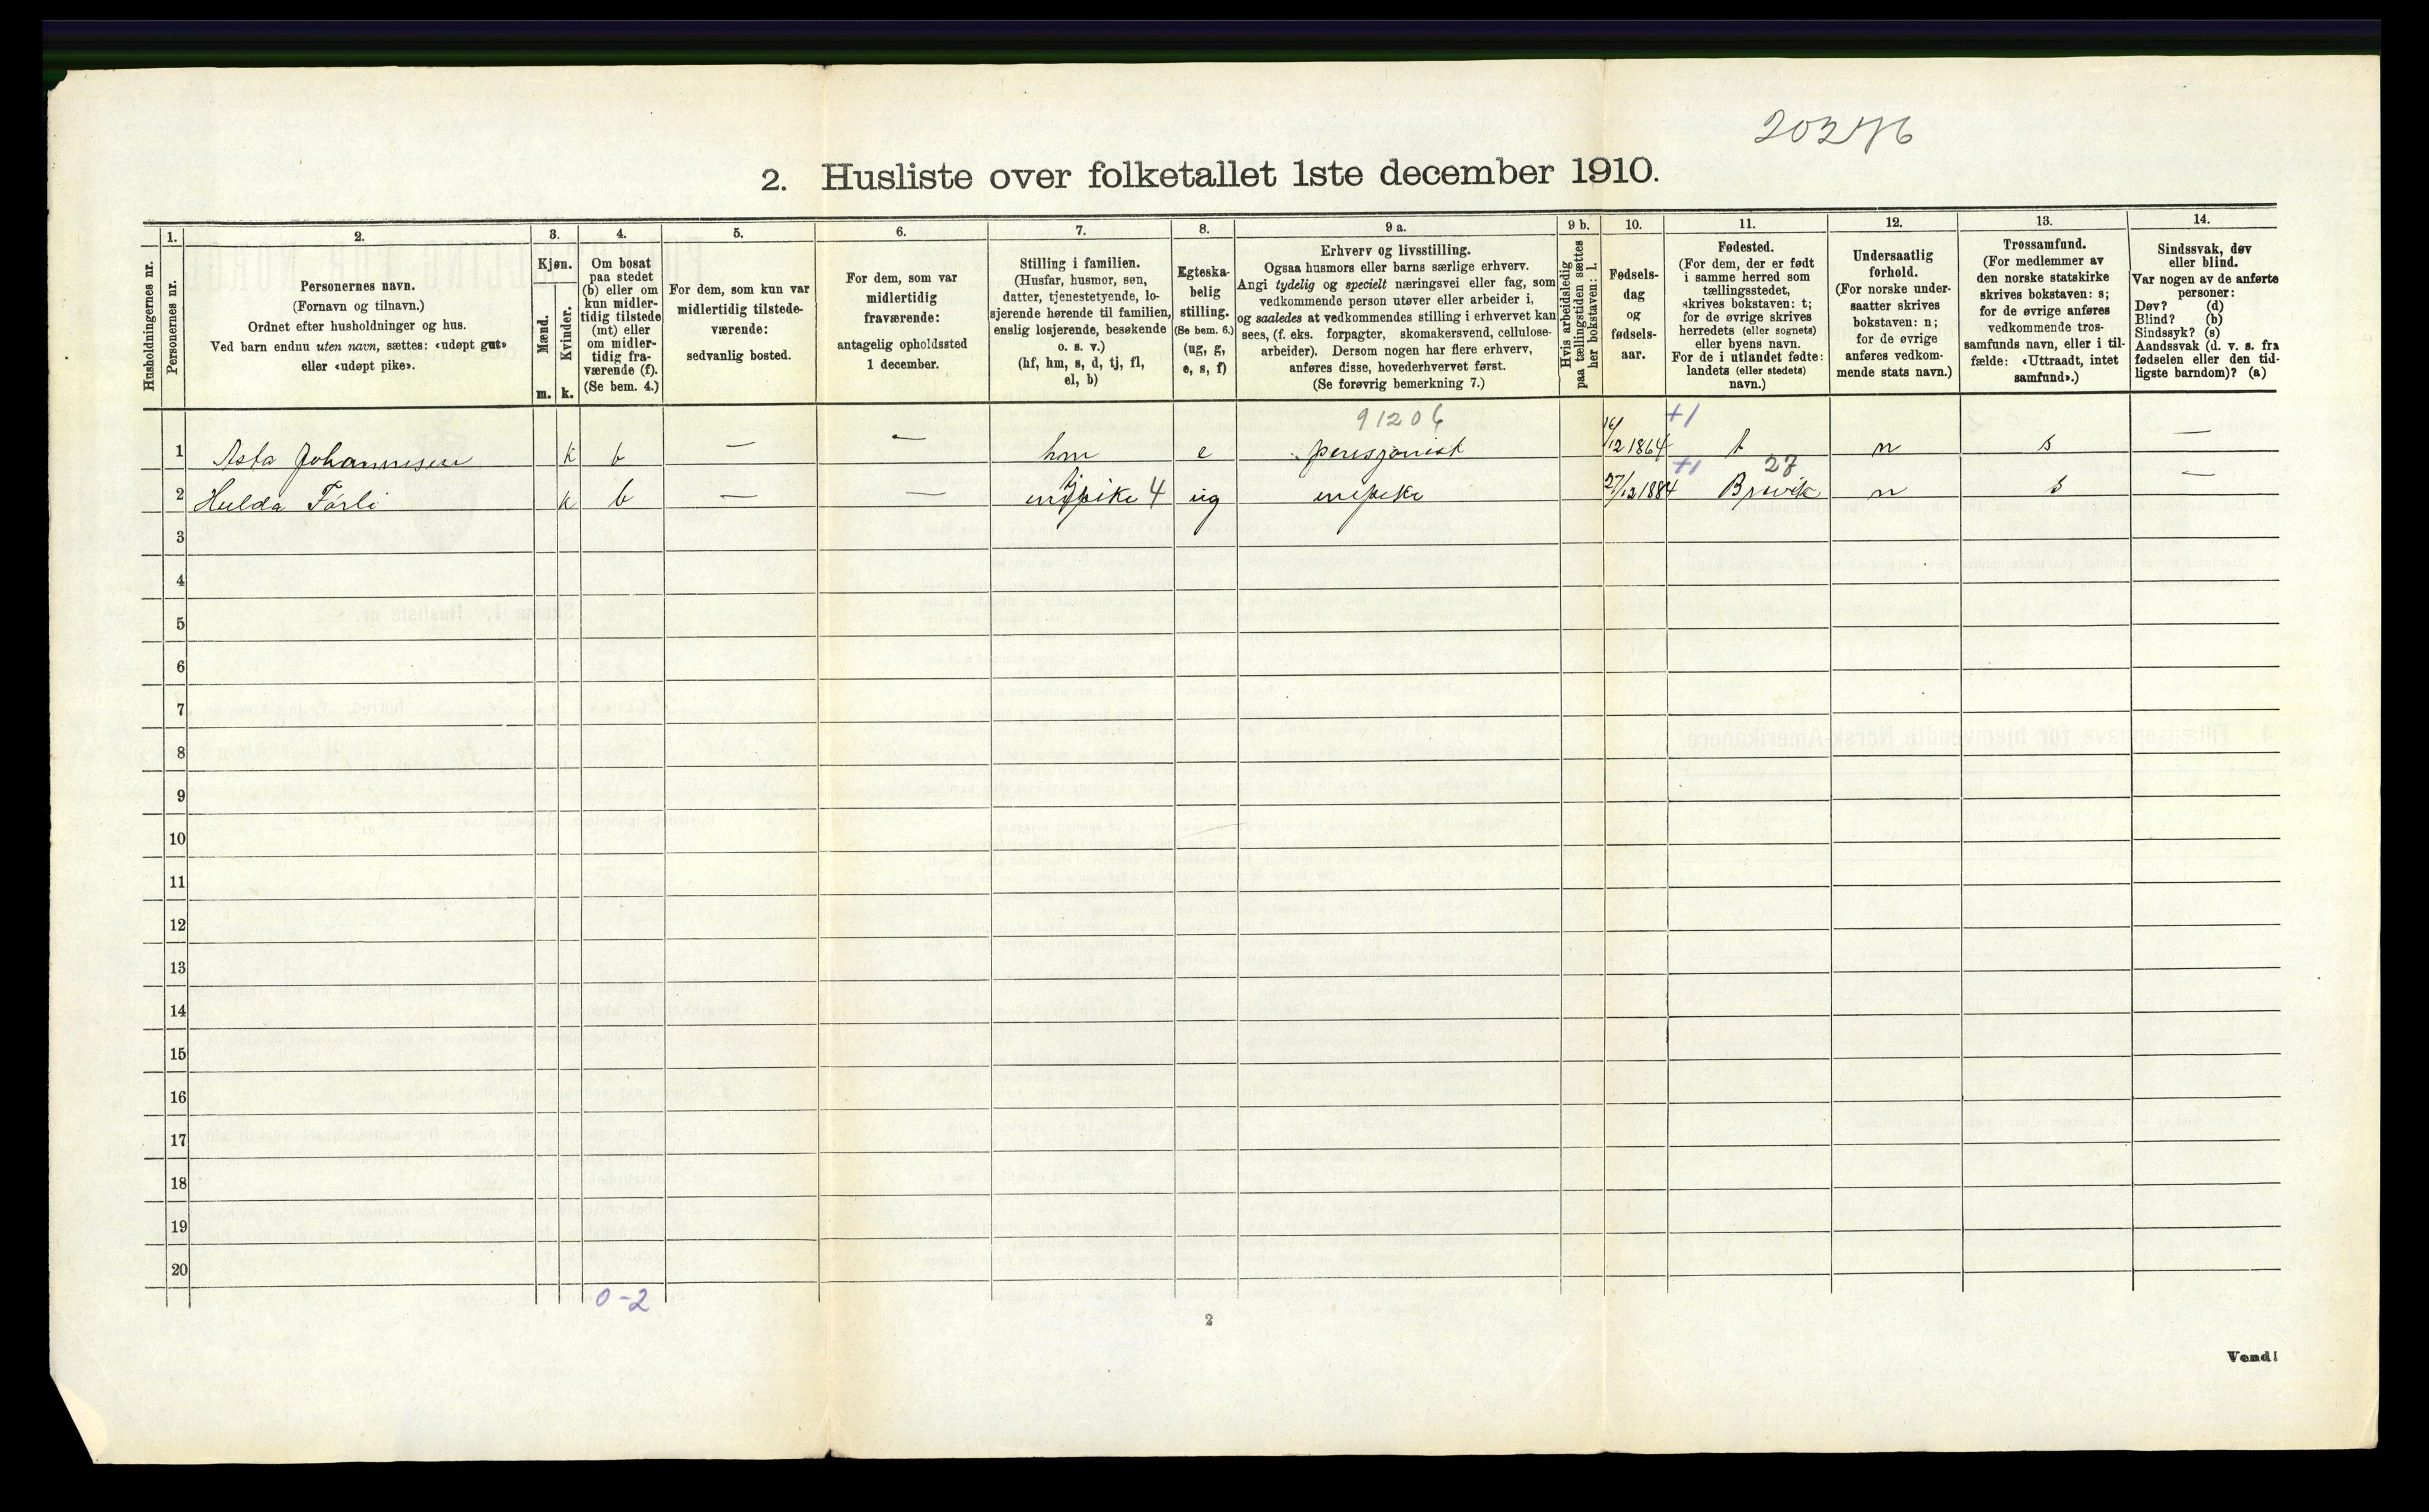 20276
2. Husliste over folketallet 1ste december 1910.
Husholdningernes nr.
1.
Personernes nr.
2.
Personernes navn.
(Fornavn og tilnavn.)
Ordnet efter husholdninger og hus.
Ved barn endnu uten navn, sættes: «udøpt gut»
eller «udøpt pike».
3.
Kjøn.
Mænd.
Kvinder.
m. k.
4.
Om bosat
paa stedet
(b) eller om
kun midler-
tidig tilstede
(mt) eller
om midler-
tidig fra-
værende (f).
(Se bem. 4.)
5.
For dem, som kun var
midlertidig tilstede-
værende:
sedvanlig bosted.
6.
For dem, som var
midlertidig
fraværende:
antagelig opholdssted
1 december.
7.
Stilling i familien.
(Husfar, husmor, søn,
datter, tjenestetyende, lo-
sjerende hørende til familien,
enslig losjerende, besøkende
o. s. v.)
(hf, hm, s, d, tj, fl,
el, b)
8.
Egteska-
belig
stilling.
(Se bem. 6.)
(ug, g,
e, s, f)
9 a.
Erhverv og livsstilling.
Ogsaa husmors eller barns særlige erhverv.
Angi tydelig og specielt næringsvei eller fag, som
vedkommende person utøver eller arbeider i,
og saaledes at vedkommendes stilling i erhvervet kan
sees, (f. eks. forpagter, skomakersvend, cellulose-
arbeider). Dersom nogen har flere erhverv,
anføres disse, hovederhvervet først.
(Se forøvrig bemerkning 7.)
9 b.
Hvis arbeidsledig
paa tællingstiden sættes
her bokstaven: l.
10.
Fødsels-
dag
og
fødsels-
aar.
11.
Fødested.
(For dem, der er født
i samme herred som
tællingsstedet,
skrives bokstaven: t;
for de øvrige skrives
herredets (eller sognets)
eller byens navn.
For de i utlandet fødte:
landets (eller stedets)
navn.)
12.
Undersaatlig
forhold.
(For norske under-
saatter skrives
bokstaven: n;
for de øvrige
anføres vedkom-
mende stats navn.)
13.
Trossamfund.
(For medlemmer av
den norske statskirke
skrives bokstaven: s;
for de øvrige anføres
vedkommende tros-
samfunds navn, eller i til-
fælde: «Uttraadt, intet
samfund».)
14.
Sindssvak, døv
eller blind.
Var nogen av de anførte
personer:
Døv? (d)
Blind? (b)
Sindssyk? (s)
Aandssvak (d. v. s. fra
fødselen eller den tid-
ligste barndom)? (a)
91206 +1
1 Asta Johannesen k b — — hm e pensjonist 16/12 1864 t n s —
+1 27
2 Hulda Førli k b — — tj 4 ug 27/12 1884 Brevik n s —
3
4
5
6
7
8
9
10
11
12
13
14
15
16
17
18
19
20
0-2
2
Vend!